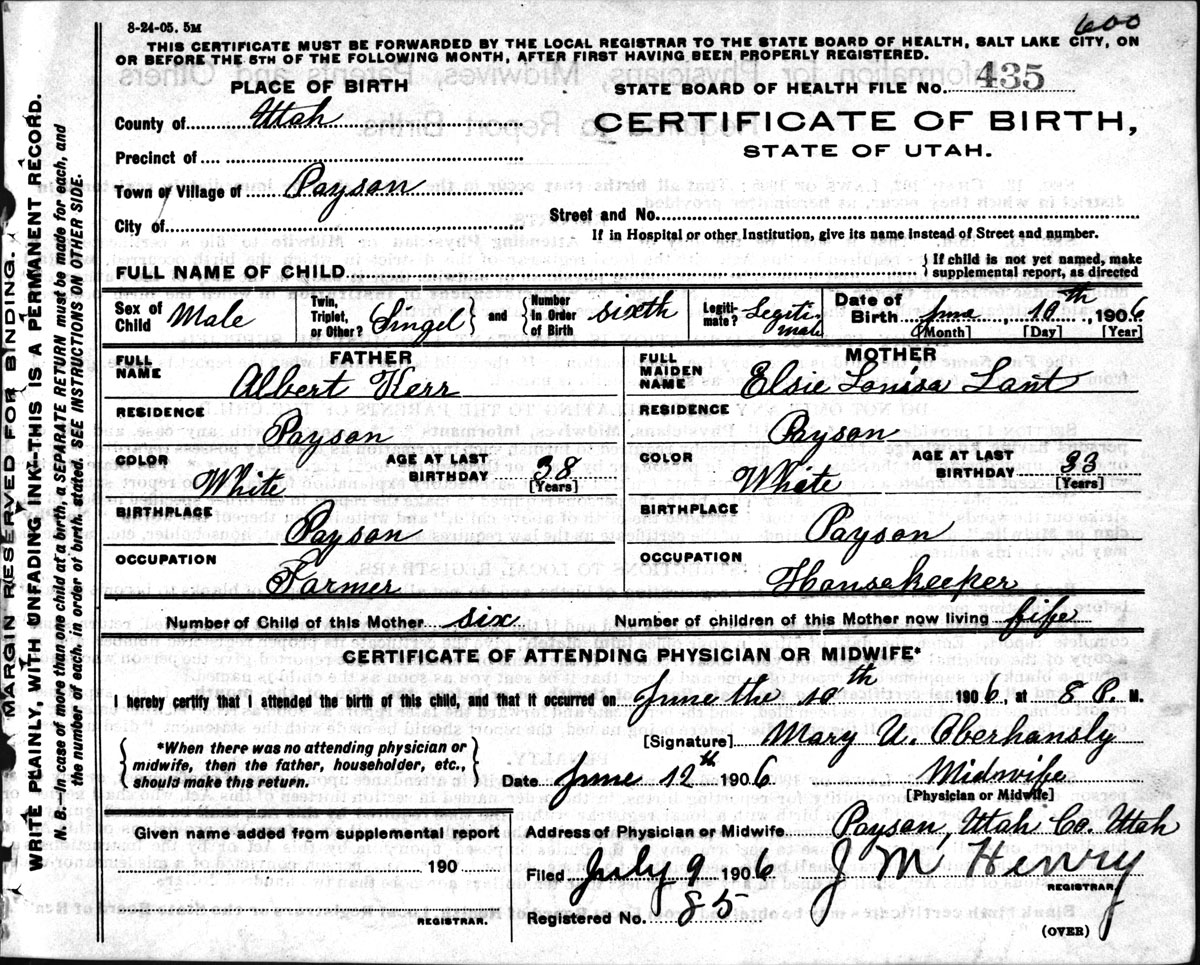 8-24-05. 5M
600
THIS CERTIFICATE MUST BE FORWARDED BY THE LOCAL REGISTRAR TO THE STATE BOARD OF HEALTH, SALT LAKE CITY, ON
OR BEFORE THE 5TH OF THE FOLLOWING MONTH, AFTER FIRST HAVING BEEN PROPERLY REGISTERED.
PLACE OF BIRTH
STATE BOARD OF HEALTH FILE No. 435
County of Utah
CERTIFICATE OF BIRTH,
STATE OF UTAH.
Precinct of
Town or Village of Payson
City of
Street and No.
If in Hospital or other Institution, give its name instead of Street and number.
FULL NAME OF CHILD
{ If child is not yet named, make
supplemental report, as directed
Sex of Child Male
Twin, Triplet, or Other? Singel } and { Number In Order of Birth sixth
Legiti-mate? Legiti-mate
Date of Birth June, 10th, 1906
[Month] [Day] [Year]
FATHER
FULL NAME Albert Kerr
RESIDENCE Payson
COLOR White
AGE AT LAST BIRTHDAY 38 [Years]
BIRTHPLACE Payson
OCCUPATION Farmer
MOTHER
FULL MAIDEN NAME Elsie Louisa Lant
RESIDENCE Payson
COLOR White
AGE AT LAST BIRTHDAY 33 [Years]
BIRTHPLACE Payson
OCCUPATION Housekeeper
Number of Child of this Mother six
Number of children of this Mother now living fife
CERTIFICATE OF ATTENDING PHYSICIAN OR MIDWIFE*
I hereby certify that I attended the birth of this child, and that it occurred on June the 10th 1906, at 8 P. M.
{ *When there was no attending physician or
midwife, then the father, householder, etc.,
should make this return. }
[Signature] Mary U. Oberhansly
Date June 12th 1906
Midwife
[Physician or Midwife]
Given name added from supplemental report
190
REGISTRAR.
Address of Physician or Midwife Payson, Utah Co. Utah
Filed July 9 1906
J M Henry
REGISTRAR.
Registered No. 85
(OVER)
MARGIN RESERVED FOR BINDING.
WRITE PLAINLY, WITH UNFADING INK—THIS IS A PERMANENT RECORD.
N. B.—In case of more than one child at a birth, a SEPARATE RETURN must be made for each, and
the number of each, in order of birth, stated. SEE INSTRUCTIONS ON OTHER SIDE.